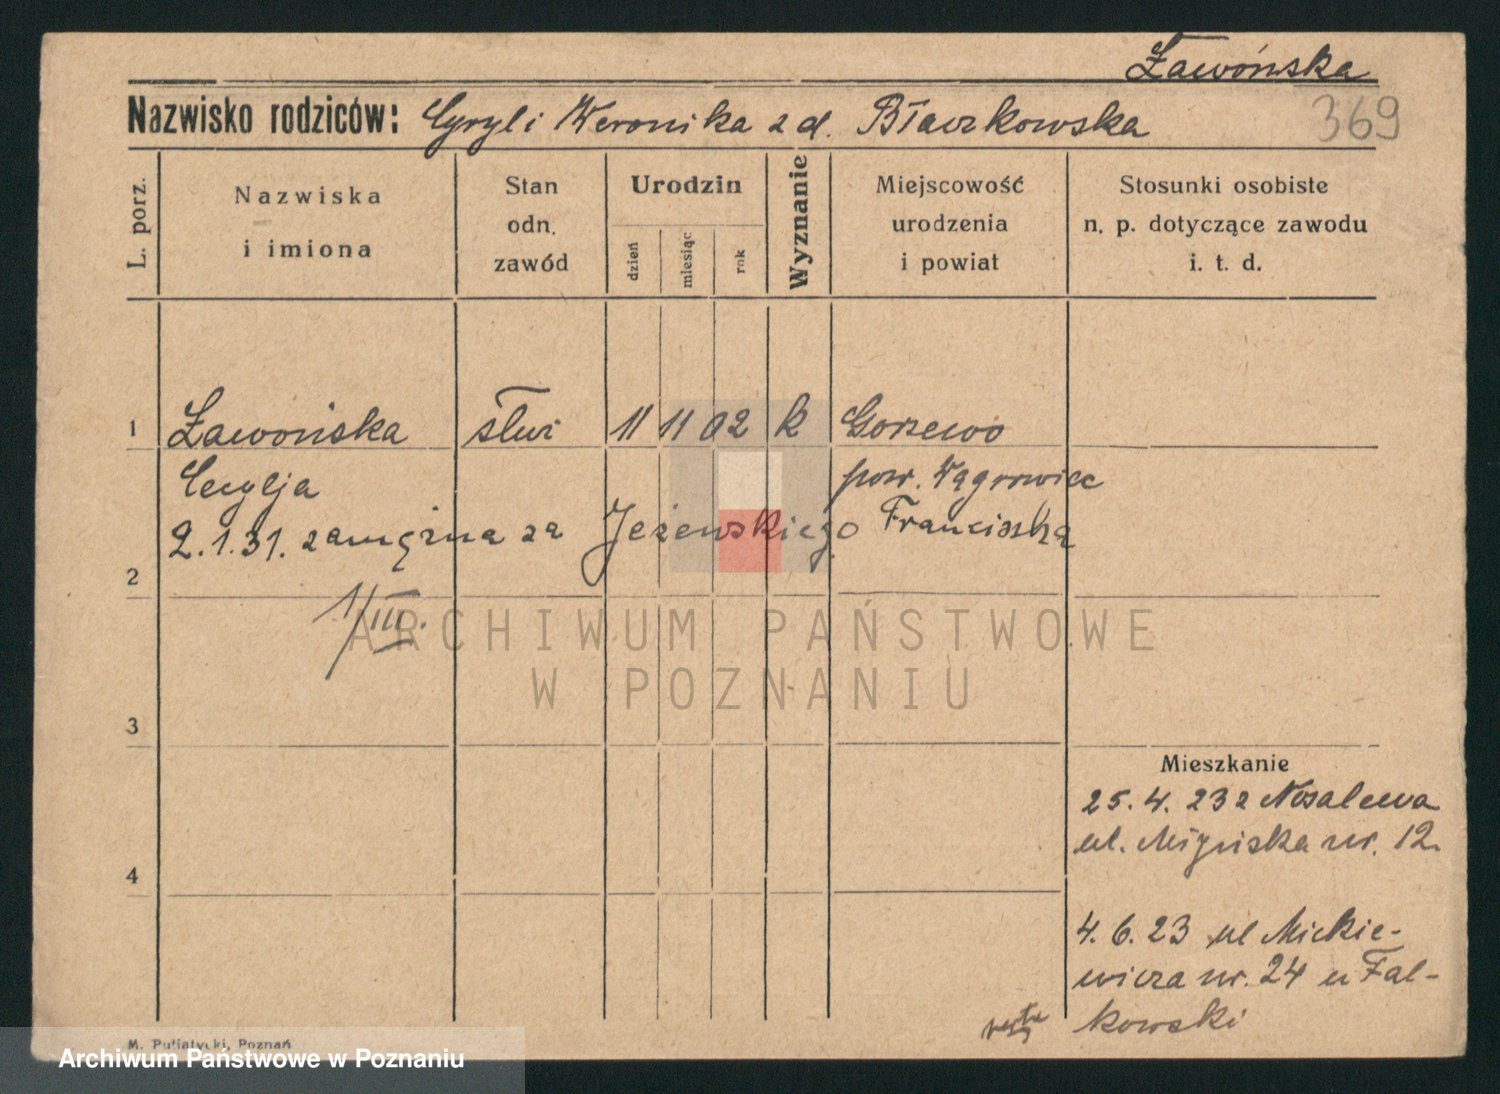 Żawońska
Nazwisko rodziców: Cyryl i Weronika z d. Błaczkowska
369
L. porz.
Nazwiska
i imiona
Stan
odn.
zawód
Urodzin
dzień
miesiąc
rok
Wyznanie
Miejscowość
urodzenia
i powiat
Stosunki osobiste
n. p. dotyczące zawodu
i. t. d.
1 Żawońska służ 11 11 02 k Gorzewo
Cecylja pow. Wągrowiec
2.1.31. zamężna za Jeżewskiego Franciszka
2
1/III.
ARCHIWUM PAŃSTWOWE
W POZNANIU
3
Mieszkanie
25. 4. 23 z Nosalewa
ul. nr. 12.
4
4. 6. 23 ul Mickie-
wicza nr. 24 u Fal-
kowski
M. Putiatycki, Poznań
Archiwum Państwowe w Poznaniu